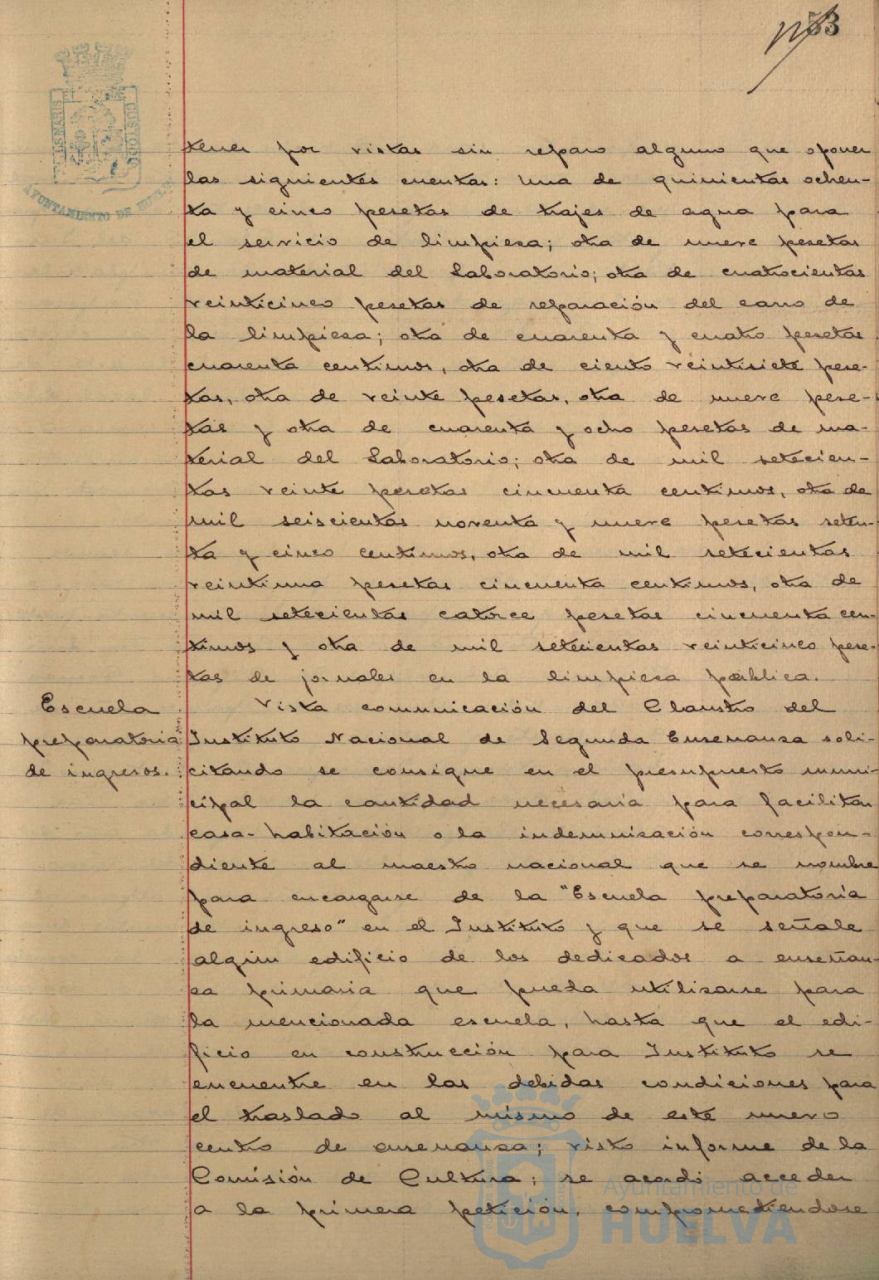 53
AYUNTAMIENTO DE
tener por vistas sin reparo alguno que oponer
las siguientes cuentas: una de quinientas ochen-
ta y cinco pesetas de trajes de agua para
el servicio de limpiesa; otra de nueve pesetas
de material del Laboratorio; otra de cuatrocientas
veinticinco pesetas de reparación del carro de
la limpiesa; otra de cuarenta y cuatro pesetas
cuarenta centimos, otra de ciento veintisiete pese-
tas, otra de veinte pesetas, otra de nueve pese-
tas y otra de cuarenta y ocho pesetas de ma-
terial del Laboratorio; otra de mil setecien-
tas veinte pesetas cincuenta centimos, otra de
mil seiscientas noventa y nueve pesetas seten-
ta y cinco centimos, otra de mil setecientas
veintiuna pesetas cincuenta centimos, otra de
mil setecientas catorce pesetas cincuenta cen-
timos y otra de mil setecientas veinticinco pese-
tas de jornales en la limpiesa pública.
Escuela
preparatoria
de ingresos.
Vista comunicación del Claustro del
Instituto Nacional de Segunda Ensenansa soli-
citando se consigne en el presupuesto muni-
cipal la cantidad necesaria para facilitar
casa-habitación o la indemnisación correspon-
diente al maestro nacional que se nombre
para encargarse de la "Escuela preparatoria
de ingreso" en el Instituto y que se señale
algun edificio de los dedicados a enseñan-
sa primaria que pueda utilisarse para
la mencionada escuela, hasta que el edi-
ficio en construcción para Instituto se
encuentre en las debidas condiciones para
el traslado al mismo de este nuevo
centro de ensenansa; visto informe de la
Comisión de Cultura; se acordó acceder
a la primera petición, comprometiendose
Ayuntamiento de
HUELVA